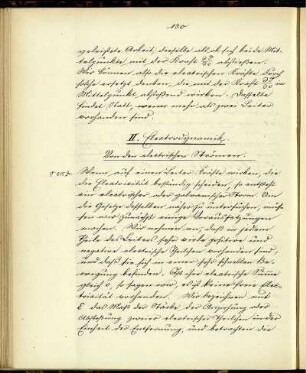 130
geleistete Arbeit, dieselbe als ob sich beide Mit-
telpunkte mit der Kraft abstießen.
Wir können also die elastischen Kräfte durch
solche ersetzt denken, die mit der Kraft im
Mittelpunkt abstoßend wirken. Dasselbe
findet statt, wenn mehr als zwei Leiter
vorhanden sind.
II. Electrodynamik.
Von den electrischen Strömen.
Wenn auf einen Leiter Kräfte wirken, die
die Electricität beständig scheiden, so entsteht
ein electrischer oder galvanischer Strom. Um
die Gesetze desselben näher zu untersuchen, müssen
wir zunächst einige Voraussetzungen
machen. Wir nehmen an, daß in jedem
Theile des Leiters sehr viele positive und
negative electrische Theilchen vorhanden sind,
und daß sie sich in einer sehr schnellen Be-
wegung befinden. Ist ihre electrische Summe
gleich 0, so sagen wir, es ist keine freie Elec-
tricität vorhanden. Wir bezeichnen mit
E das Maß der Stärke der Anziehung oder
Abstoßung zweier electrischer Theilchen in der
Einheit der Entfernung, und betrachten die